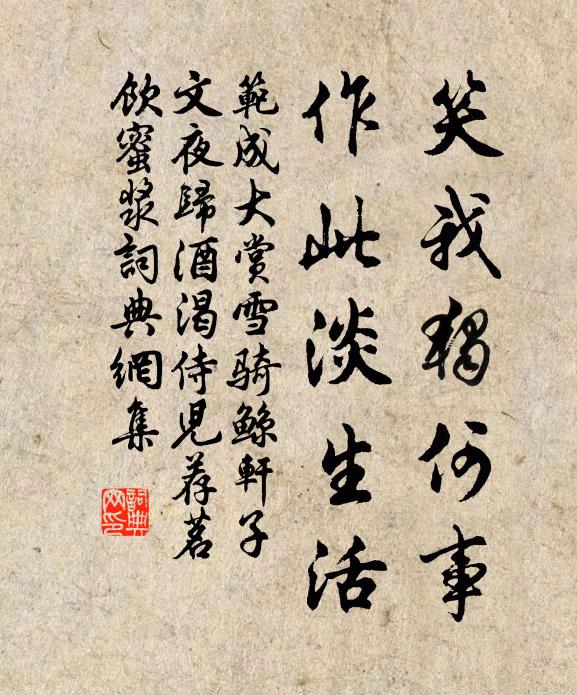 笑我獨何事
作此淡生活
範成大賞雪骑鲸軒子
文夜歸酒渴侍兒荐茗
飲蜜漿詞典網集
詞典网印